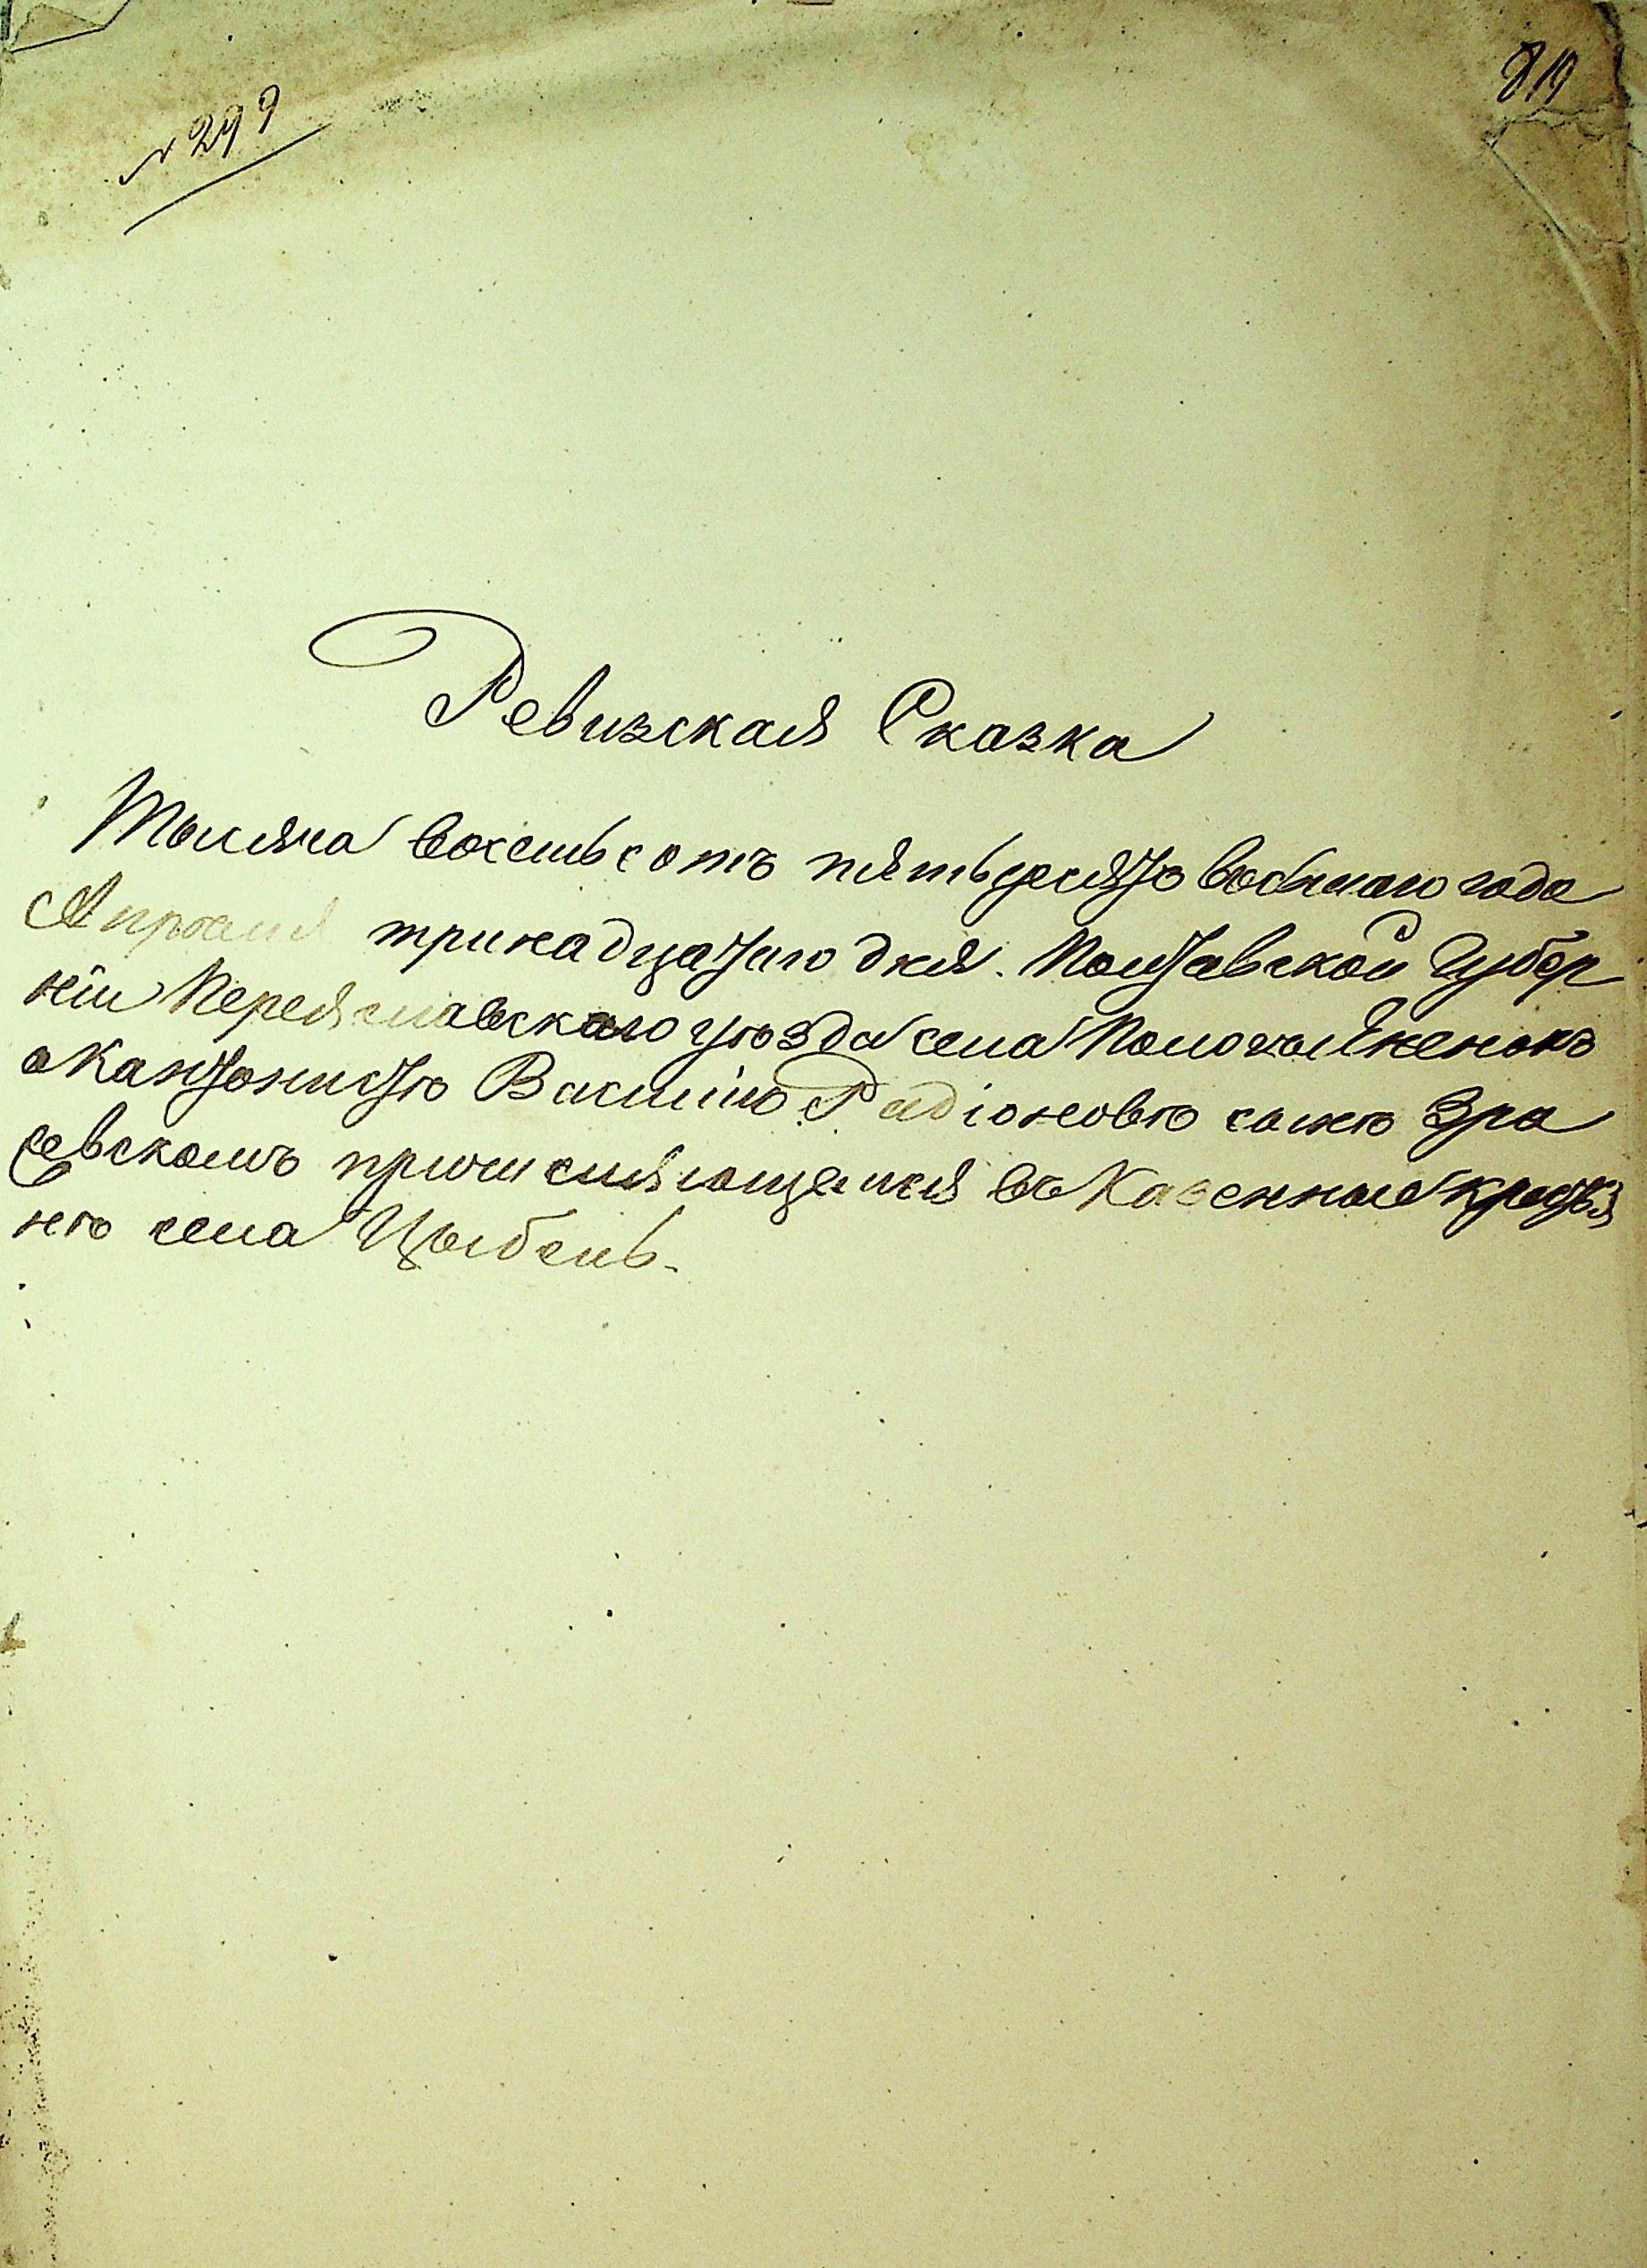 № 299
819
Ревизская Сказка
Тысяча восемьсотъ пятьдесятъ восьмаго года
Апрѣля тринадцатаго дня. Полтавской Губер
ніи Переяславскаго уѣзда села
о Кантонистѣ Василіѣ Радіоновѣ сынѣ Зра
севскомъ причисляющемся въ Казенные крестья
не села Цыбель.